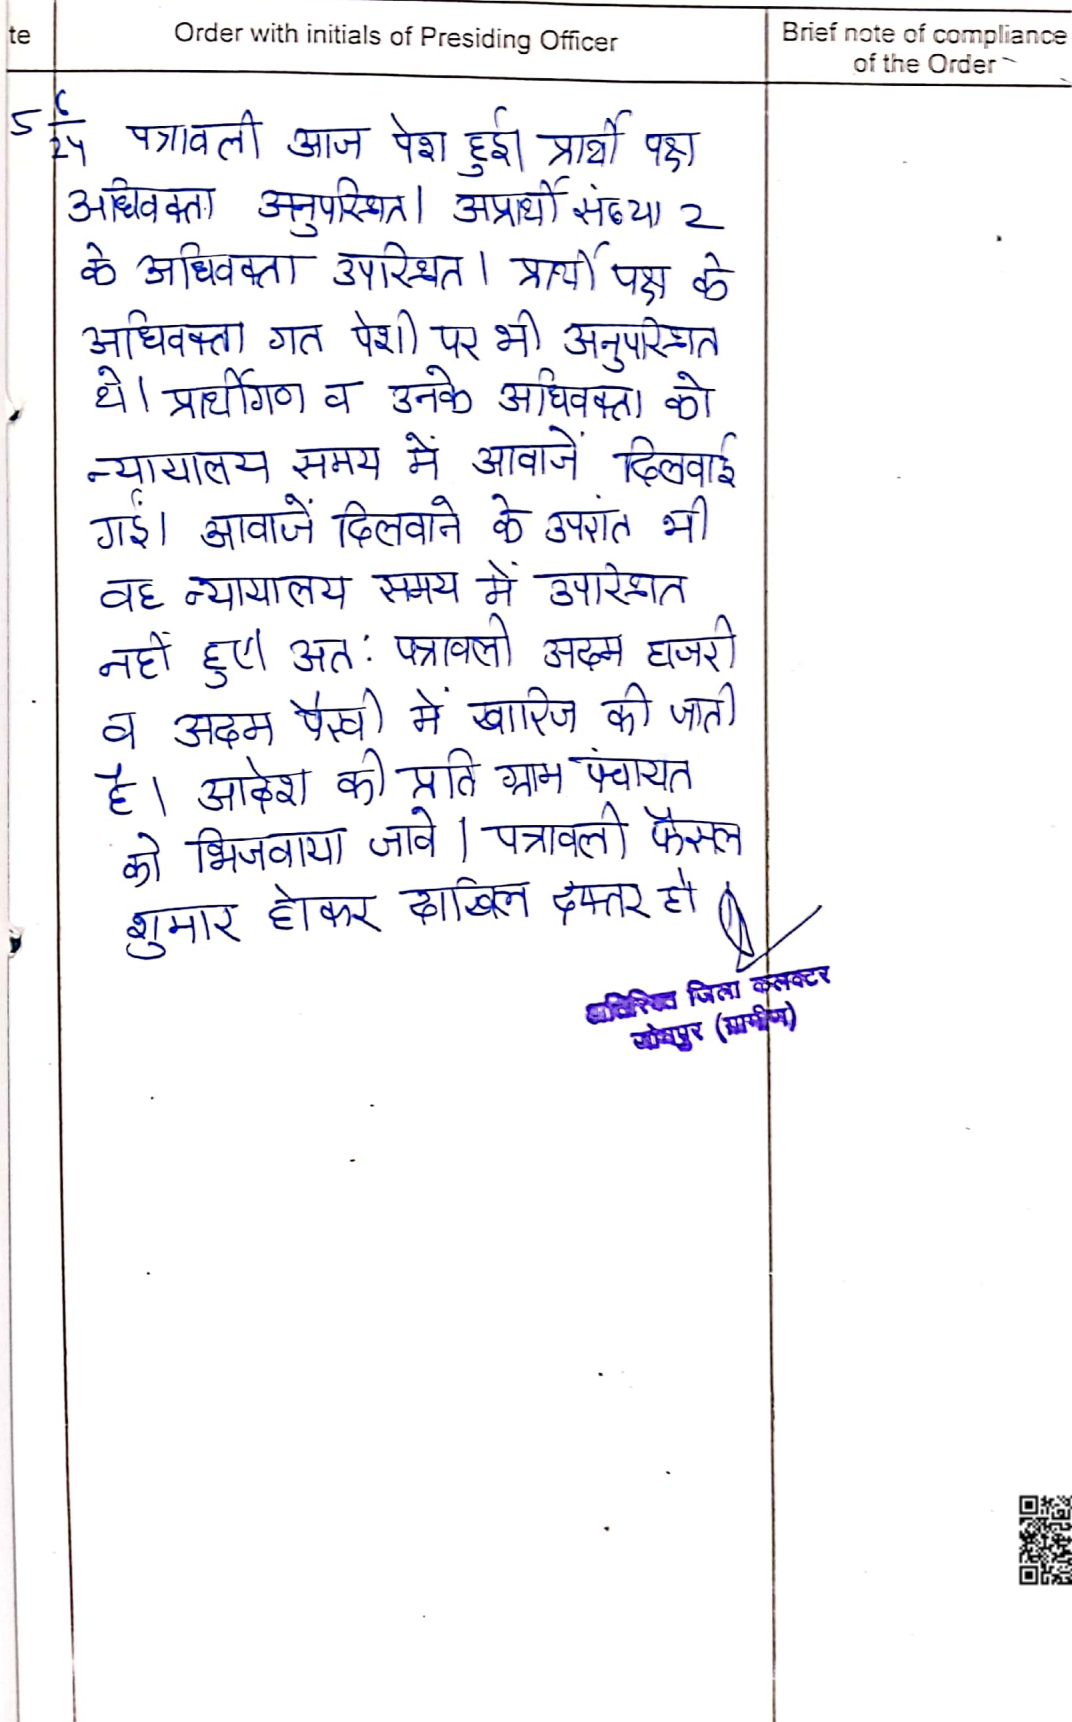 te
Order with initials of Presiding Officer
Brief note of compliance
of the Order
5 6/24 पत्रावली आज पेश हुई। प्रार्थी पक्ष
अधिवक्ता अनुपस्थित। अप्रार्थी संख्या 2
के अधिवक्ता उपस्थित। प्रार्थी पक्ष के
अधिवक्ता गत पेशी पर भी अनुपस्थित
थे। प्रार्थीगण व उनके अधिवक्ता को
न्यायालय समय में आवाजें दिलवाई
गई। आवाजें दिलवाने के उपरांत भी
वह न्यायालय समय में उपस्थित
नहीं हुए। अत: पत्रावली अदम हाजरी
व अदम पैरवी में खारिज की जाती
है। आदेश की प्रति ग्राम पंचायत
को भिजवाया जावे। पत्रावली फैसल
शुमार होकर दाखिल दफ्तर हो
अतिरिक्त जिला कलक्टर
जोधपुर (ग्रामीण)